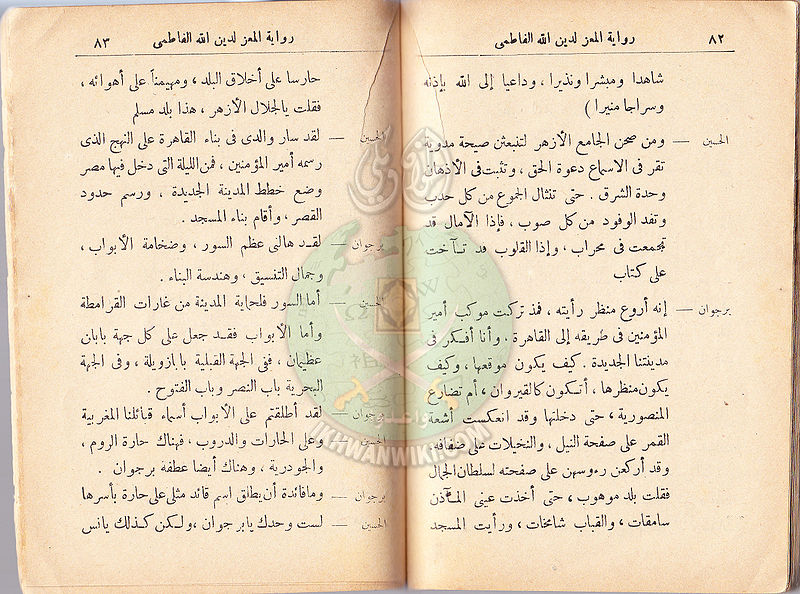 ٨٢ رواية المعز لدين الله الفاطمى
شاهدا ومبشرا ونذيرا ، وداعيا إلى الله بإذنه
وسراجا منيرا )
الحسين — ومن صحن الجامع الأزهر لتنبعثن صيحة مدوية
تقر فى الاسماع دعوة الحق ، وتثبت فى الأذهان
وحدة الشرق . حتى تنثال الجموع من كل حدب
وتفد الوفود من كل صوب ، فإذا الآمال قد
تجمعت فى محراب ، وإذا القلوب قد تـآخت
على كتاب
برجوان — إنه أروع منظر رأيته ، فمذ تركت موكب أمير
المؤمنين فى طريقه إلى القاهرة . وأنا أفـكر فى
مدينتنا الجديدة . كيف يكون موقعها ، وكيف
يكون منظرها ، أتـكون كالقيروان ، أم تضارع
المنصورية ، حتى دخلتها وقد انعكست أشعة
القمر على صفحة النيل ، والنخيلات على ضفافه
وقد أركعن رءوسهن على صفحته لسلطان الجمال
فقلت بلد موهوب ، حتى أخذت عينى المـآذن
سامقات ، والقباب شامخات ، ورأيت المسجد
رواية المعز لدين الله الفاطمى ٨٣
حارسا على أخلاق البلد ، ومهيمناً على أهوائه ،
فقلت يالجلال الأزهر ، هذا بلد مسلم
الحسين — لقد سار والدى فى بناء القاهرة على النهج الذى
رسمه أمير المؤمنين ، فمن الليلة التى دخل فيها مصر
وضع خطط المدينة الجديدة . ورسم حدود
القصر ، وأقام بناء المسجد .
برجوان — لقـد هالنى عظم السور ، وضخامة الأبواب ،
وجمال التنسيق ، وهندسة البناء .
الحسين — أما السور فلحماية المدينة من غارات القرامطة
وأما الأبواب فقـد جعل على كل جهة بابان
عظيمان ، ففى الجهة القبلية بابا زويلة ، وفى الجهة
البحرية باب النصر وباب الفتوح .
برجوان — لقد أطلقتم على الأبواب أسماء قبائلنا المغربية
الحسين — وعلى الحارات والدروب ، فهناك حارة الروم ،
والجودرية ، وهناك أيضا عطفة برجوان .
برجوان — وما فائدة أن يطلق اسم قائد مثلى على حارة بأسرها
الحسين — لست وحدك يا برجوان ، ولـكن كـذلك يانس
IKHWANWIKI.COM